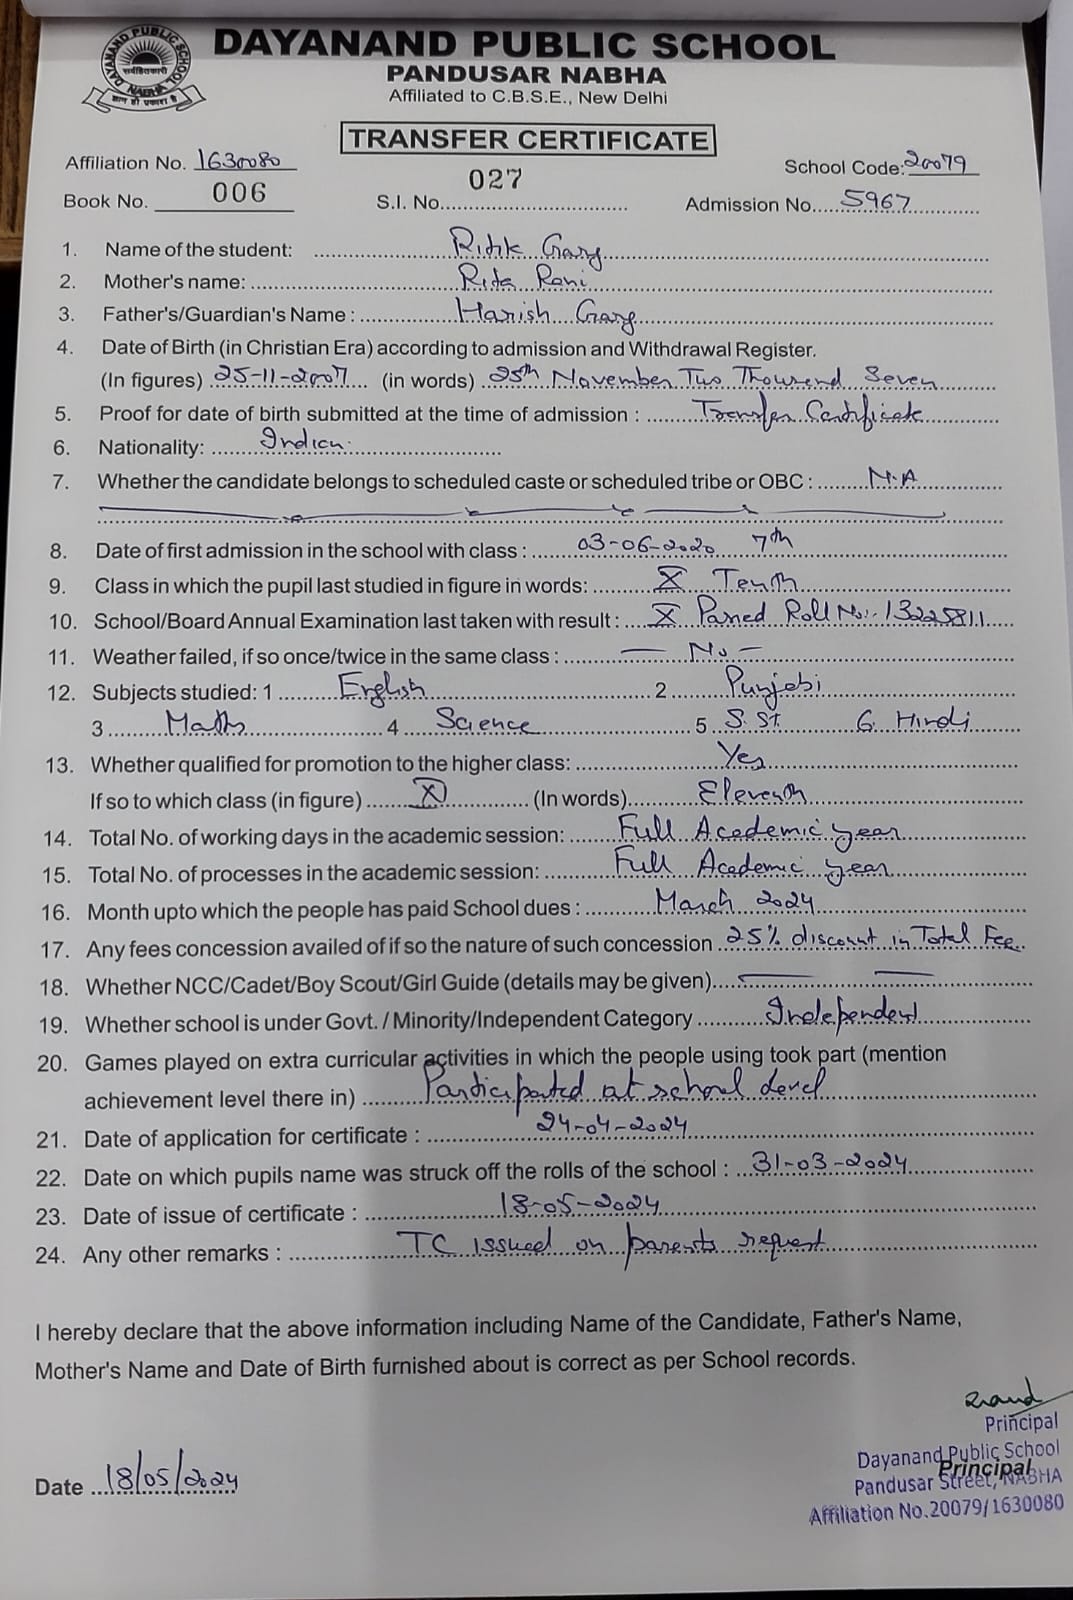 DAYANAND PUBLIC SCHOOL
PANDUSAR NABHA
Affiliated to C.B.S.E., New Delhi
DAYANAND PUBLIC SCHOOL
NABHA
TRANSFER CERTIFICATE
Affiliation No. 1630080 School Code: 20079
Book No. 006 S.I. No. 027 Admission No. 5967
1. Name of the student: Ritik Garg
2. Mother's name: Rita Rani
3. Father's/Guardian's Name : Harish Garg
4. Date of Birth (in Christian Era) according to admission and Withdrawal Register.
(In figures) 25-11-2007 (in words) 25th November Two Thousand Seven
5. Proof for date of birth submitted at the time of admission : Transfer Certificate
6. Nationality: Indian
7. Whether the candidate belongs to scheduled caste or scheduled tribe or OBC : N.A
8. Date of first admission in the school with class : 03-06-2020 7th
9. Class in which the pupil last studied in figure in words: X Tenth
10. School/Board Annual Examination last taken with result : X Passed Roll No:- 13225811
11. Weather failed, if so once/twice in the same class : — No —
12. Subjects studied: 1 English 2 Punjabi
3 Maths 4 Science 5 S.St. 6. Hindi
13. Whether qualified for promotion to the higher class: Yes
If so to which class (in figure) XI (In words) Eleventh
14. Total No. of working days in the academic session: Full Academic year
15. Total No. of processes in the academic session: Full Academic year
16. Month upto which the people has paid School dues : March 2024
17. Any fees concession availed of if so the nature of such concession 25% discount in Total Fee
18. Whether NCC/Cadet/Boy Scout/Girl Guide (details may be given) — —
19. Whether school is under Govt. / Minority/Independent Category Independent
20. Games played on extra curricular activities in which the people using took part (mention
achievement level there in) Participated at school level
21. Date of application for certificate : 24-04-2024
22. Date on which pupils name was struck off the rolls of the school : 31-03-2024
23. Date of issue of certificate : 18-05-2024
24. Any other remarks : TC issued on parents request
I hereby declare that the above information including Name of the Candidate, Father's Name,
Mother's Name and Date of Birth furnished about is correct as per School records.
Principal
Dayanand Public School
Principal
Pandusar Street, NABHA
Affiliation No.20079/1630080
Date 18/05/2024